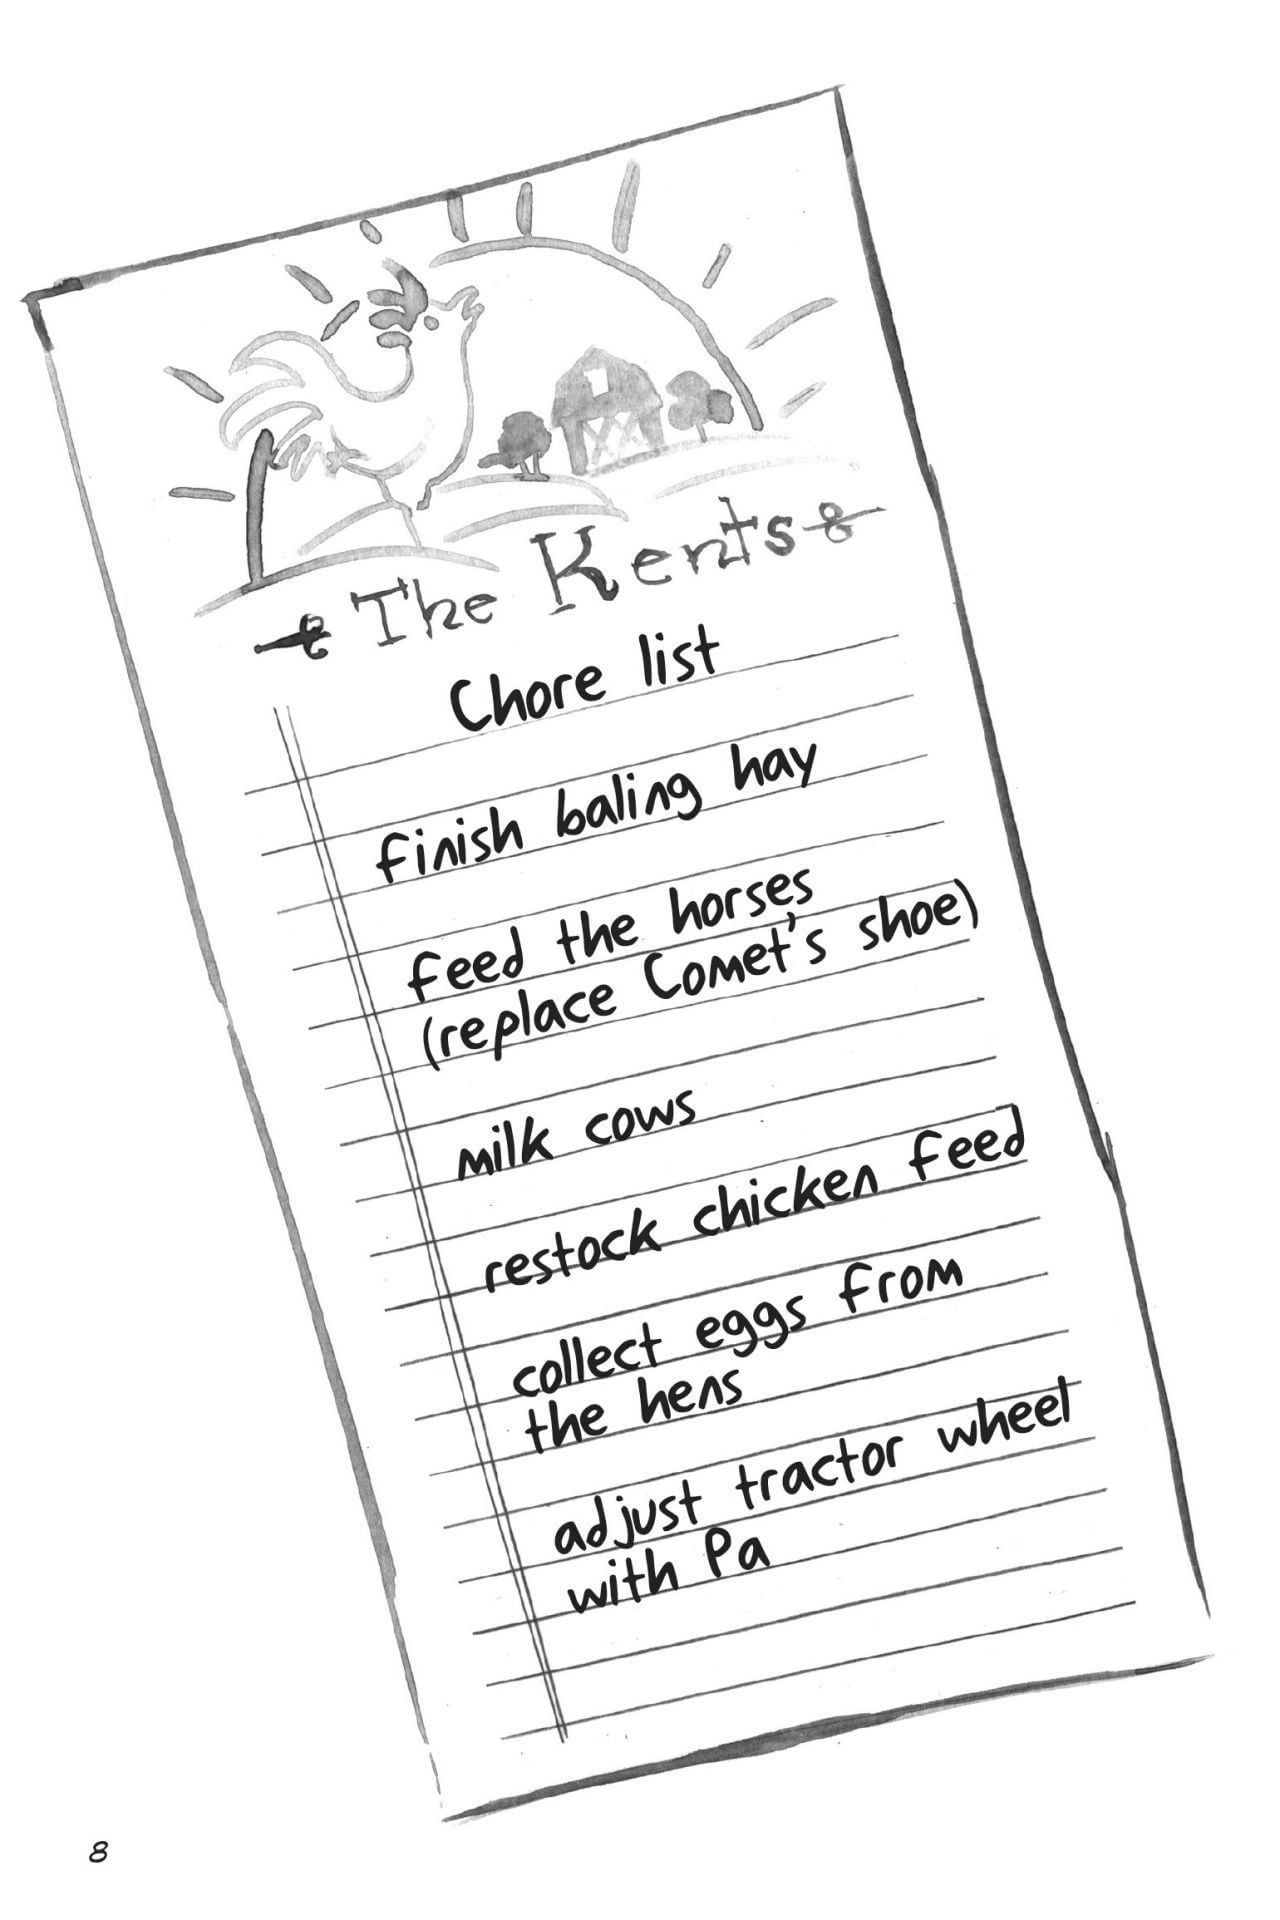 The Kents
Chore list
finish baling hay
feed the horses
(replace Comet's shoe)
milk cows
restock chicken feed
collect eggs from
the hens
adjust tractor wheel
with Pa
8